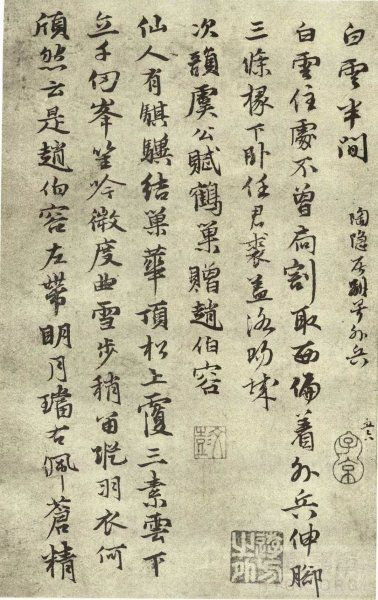 白雲半間 陶隱居別號外兵
白雲住處不曾扃割取西偏着外兵伸腳
三條椽下卧任君裘蓋洛陽城
次韻虞公賦鶴巢贈趙伯容
仙人有騏驥結巢華頂松上覆三素雲下
立千仞峯笙吟微度曲雪步稍留蹤羽衣何
頎然云是趙伯容左帶明月璫右佩蒼精
子京